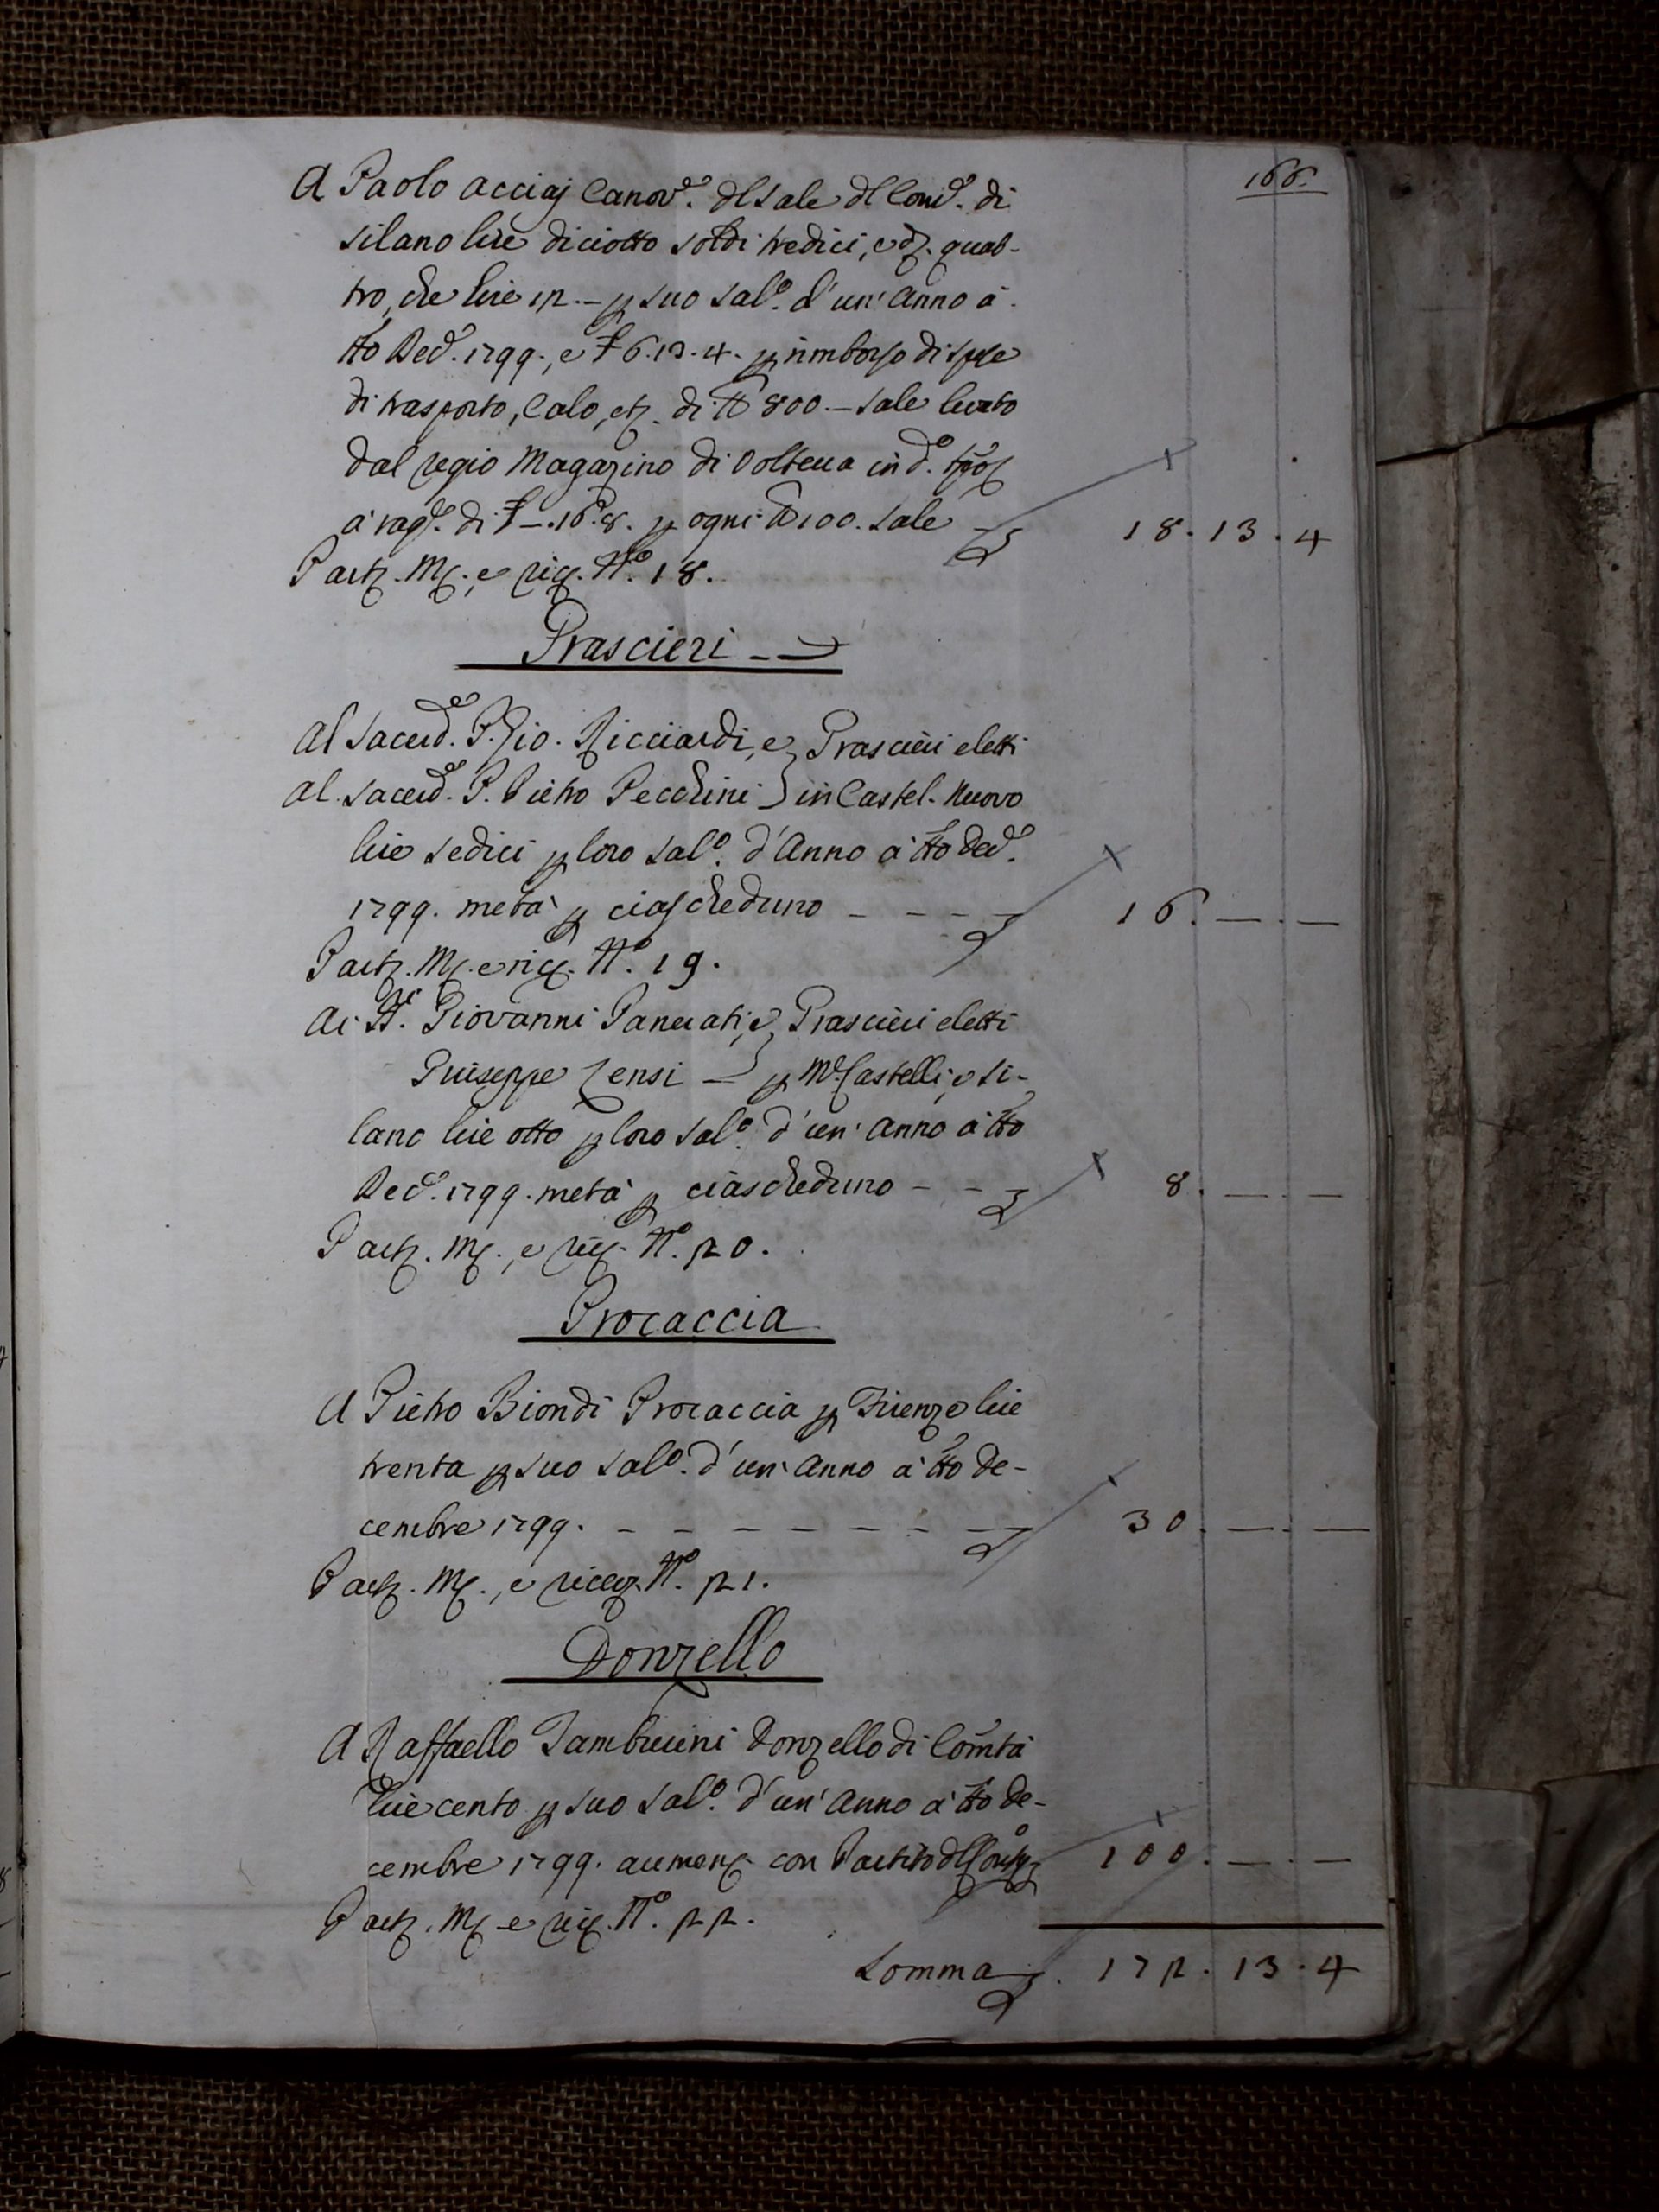 166.
A Paolo Acciaj Canov.e dl Sale dl Com.e di
Silano lire diciotto soldi tredici, e d. quat-
tro, che lire 12.– p suo Sal.o d'un' Anno à
tto Dec.e 1799., e £ 6.13.4. p rimborso di spese
di trasporto, Calo, etc. di lb 800.– Sale levato
dal Regio Magazino di Volterra in d.o
à rag.e di £ –.16.8. p ogni lb 100. Sale – 18.13.4
Part. M., e ric. N.o 18.
Grascieri
Al Sacerd.e P. Gio. Ricciardi, e Grascieri eletti
Al Sacerd.e P. Pietro Pecchini in Castel-Nuovo
lire sedici p loro Sal.o d'Anno à tto Dec.e
1799. metà p ciascheduno – – – – 16.–.–
Part. M. e ric. N.o 19.
Ai Giovanni Pancrati, e Grascieri eletti
Giuseppe Censi – p M. Castelli, e Si-
lano lire otto p loro Sal.o d'un' Anno à tto
Dec.e 1799. metà p ciascheduno – – – 8.–.–
Part. M., e ric. N.o 20.
Procaccia
A Pietro Biondi Procaccia p Firenze lire
trenta p suo Sal.o d'un' Anno à tto De-
cembre 1799. – – – – – – – 30.–.–
Part. M., e ricev. N.o 21.
Donzello
A Raffaello Tamburini Donzello di Comtà
lire cento p suo Sal.o d'un' Anno à tto De-
cembre 1799. aumen. con Partito dl 100.–.–
Part. M. e ric. N.o 22.
Somma 172.13.4